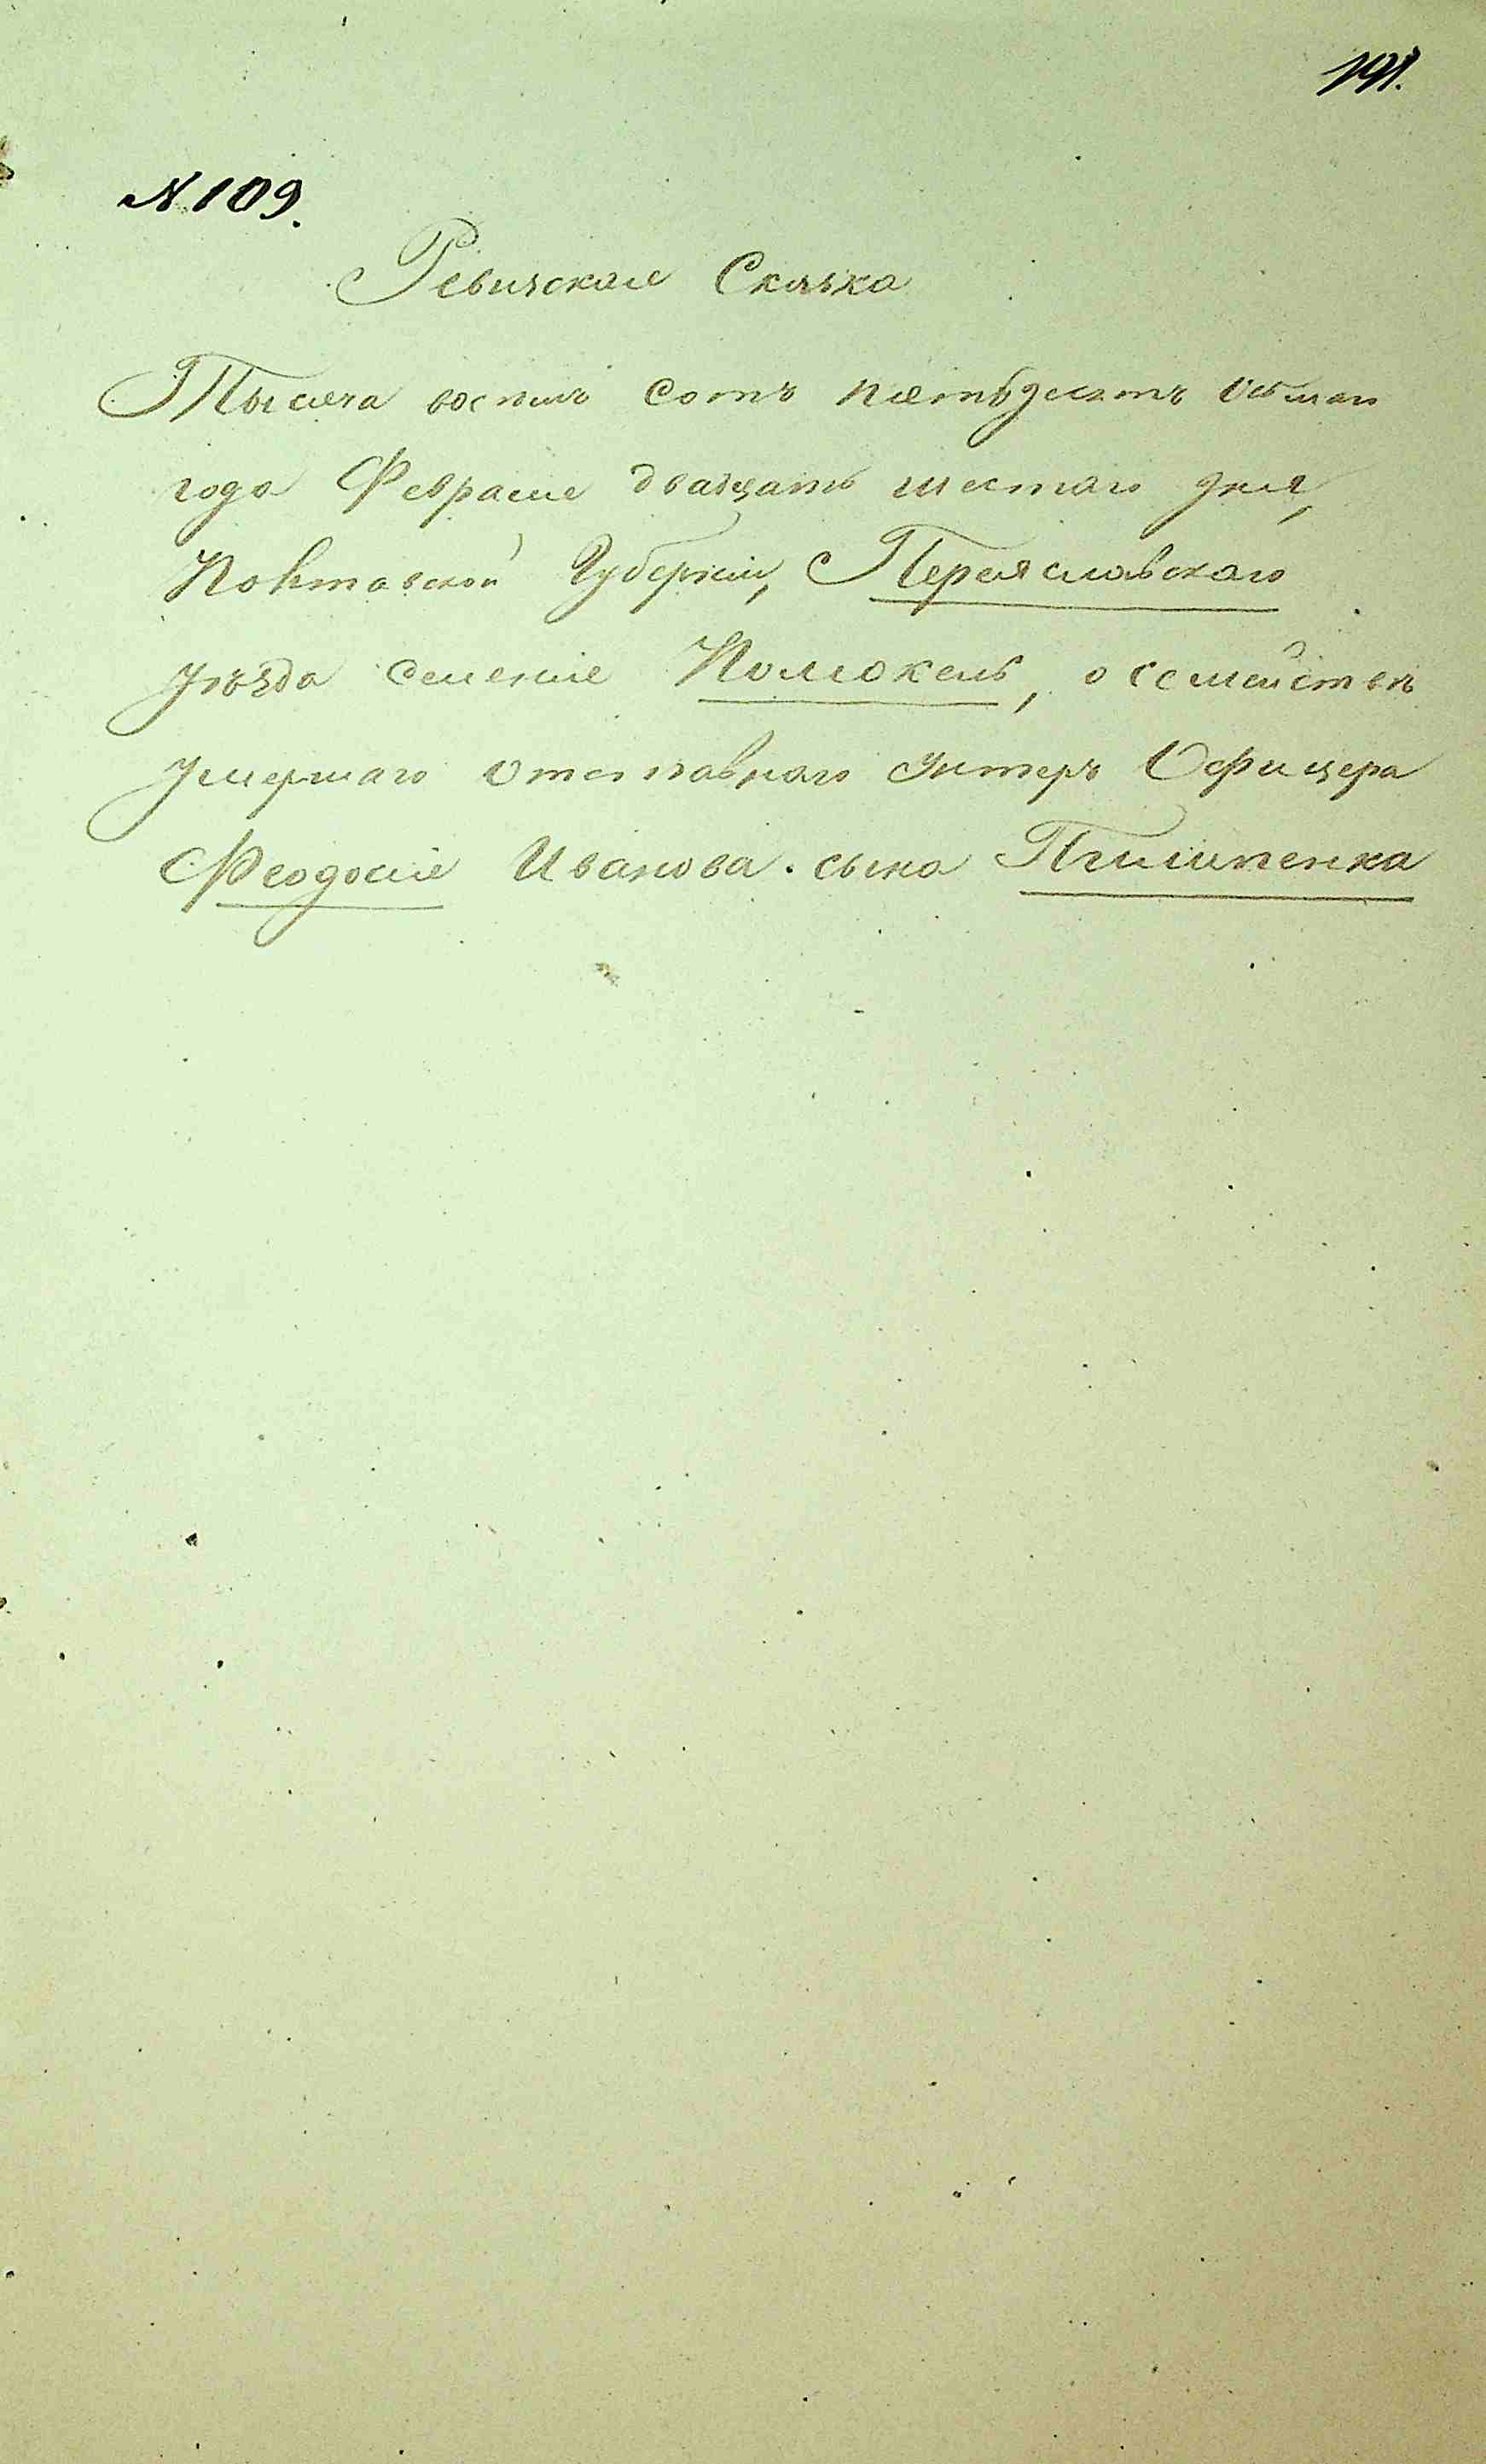 191.
N. 109.
Ревизская Сказка
Тысяча восемь сотъ пятьдесятъ восьмаго
года Февраля двадцать шестаго дня,
Полтавской Губерніи, Переяславскаго
уѣзда селенія Помокель, о семействѣ
умершаго отставнаго Унтеръ Офицера
Феодосія Иванова сына Пилипенка